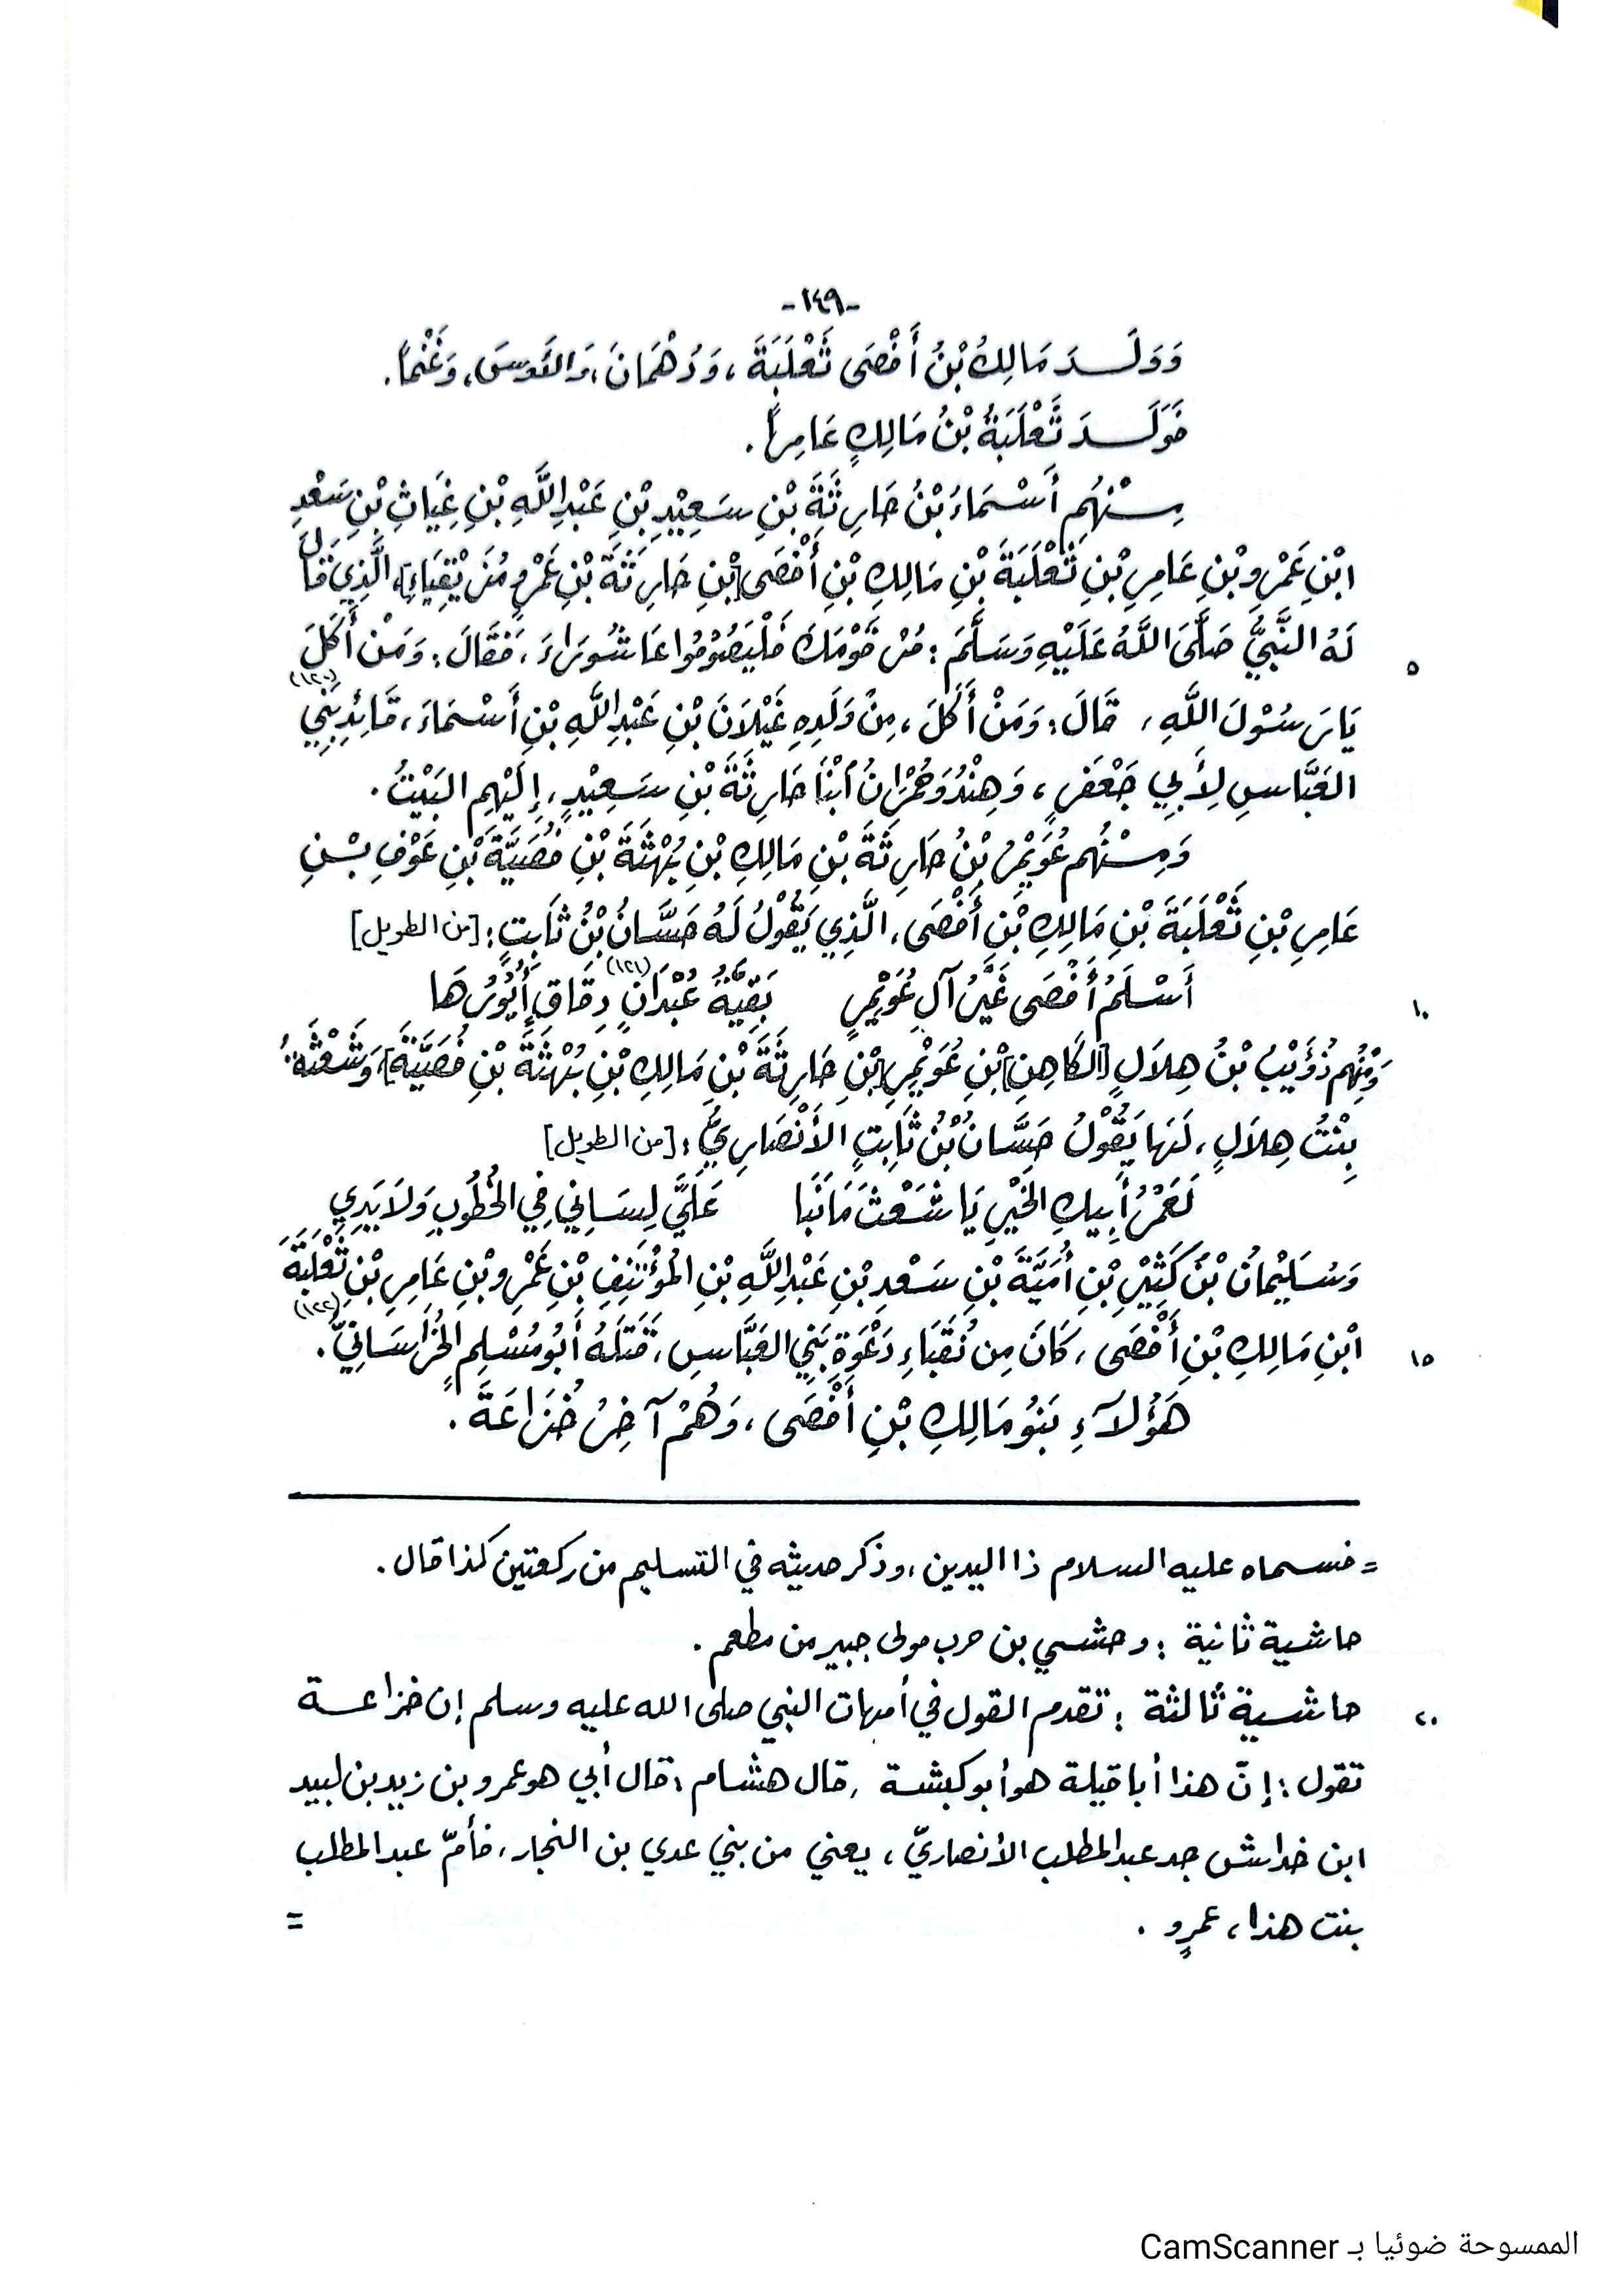 -١٤٩-
وَوَلَـدَ مَالِكُ بْنُ أَفْصَى ثَعْلَبَةَ، وَدُهْمَانَ، وَالقَوسَ، وَغَنْماً.
فَوَلَـدَ ثَعْلَبَةُ بْنُ مَالِكٍ عَامِراً.
مِـنْهُم أَسْمَاءُ بْنُ حَارِثَةَ بْنِ سَعِيْدِ بْنِ عَبْدِ اللَّهِ بْنِ غِيَاثِ بْنِ سَعْدِ
ابْنِ عَمْرِو بْنِ عَامِرِ بْنِ ثَعْلَبَةَ بْنِ مَالِكِ بْنِ أَفْصَى [بْنِ حَارِثَةَ بْنِ عَمْرٍو مُزَيْقِيَاءِ]، الَّذِي قَالَ
لَهُ النَّبِيُّ صَلَّى اللَّهُ عَلَيْهِ وَسَلَّمَ: مُرْ قَوْمَكَ فَلْيَصُوْمُوا عَاشُورَاءَ، فَقَالَ: وَمَنْ أَكَلَ ٥
يَا رَسُوْلَ اللَّهِ، قَالَ: وَمَنْ أَكَلَ، مِنْ وَلَدِهِ غَيْلَانَ بْنِ عَبْدِ اللَّهِ بْنِ أَسْمَاءَ، قَائِدِ بَنِي (١٢٠)
العَبَّاسِ لِأَبِي جَعْفَرٍ، وَهِنْدُ وَحُمْرَانُ ابْنَا حَارِثَةَ بْنِ سَعِيْدٍ، إِلَيْهِم البَيْتُ.
وَمِـنْهُم عُوَيْمِرُ بْنُ حَارِثَةَ بْنِ مَالِكِ بْنِ بُهْثَةَ بْنِ قُصَيَّةَ بْنِ عَوْفِ بْـنِ
عَامِرِ بْنِ ثَعْلَبَةَ بْنِ مَالِكِ بْنِ أَفْصَى، الَّذِي يَقُوْلُ لَهُ حَسَّانُ بْنُ ثَابِتٍ: [من الطويل]
أَسْلَمُ أَفْصَى غَيْرُ آلِ عُوَيْمِرٍ بَقِيَّةُ عُبْدَانٍ (١٢١) دِقَاقٍ أُيُوْرُهَا ١٠
وَمِنْهُم ذُؤَيْبُ بْنُ هِلاَلٍ [الكَاهِنِ] بْنِ عُوَيْمِرِ [بْنِ حَارِثَةَ بْنِ مَالِكِ بْنِ بُهْثَةَ بْنِ قُصَيَّةَ]، وَشَعْثَةُ
بِنْتُ هِلاَلٍ، لَهَا يَقُوْلُ حَسَّانُ بْنُ ثَابِتٍ الأَنْصَارِيُّ: [من الطويل]
لَعَمْرُ أَبِيكِ الخَيْرِ يَا شَعْثَ مَا نَبَا عَلَيَّ لِسَانِي فِي الخُطُوبِ وَلاَ يَدِي
وَسُلَيْمَانُ بْنُ كَثِيْرِ بْنِ أُمَيَّةَ بْنِ سَعْدِ بْنِ عَبْدِ اللَّهِ بْنِ المُؤْتَنِفِ بْنِ عَمْرِو بْنِ عَامِرِ بْنِ ثَعْلَبَةَ
ابْنِ مَالِكِ بْنِ أَفْصَى، كَانَ مِن نُقَبَاءِ دَعْوَةِ بَنِي العَبَّاسِ، قَتَلَهُ أَبُو مُسْلِمٍ الخُرَاسَانِيُّ. (١٢٢) ١٥
هَؤُلاَءِ بَنُو مَالِكِ بْنِ أَفْصَى، وَهُمْ آخِرُ خُزَاعَةَ.
= فسماه عليه السلام ذا اليدين، وذكر حديثه في التسليم من ركعتين كذا قال.
حاشية ثانية : وحشي بن حرب مولى جبير من مطعم.
حاشية ثالثة : تقدم القول في أمهات النبي صلى الله عليه وسلم إن خزاعـة ٢٠
تقول: إنّ هذا أبا قيلة هو أبو كبشة، قال هشام: قال أبي هو عمرو بن زيد بن لبيد
ابن خداش جد عبد المطلب الأنصاريّ، يعني من بني عدي بن النجار، فأمّ عبد المطلب
بنت هذا، عمرٍو. =
الممسوحة ضوئيا بـ CamScanner